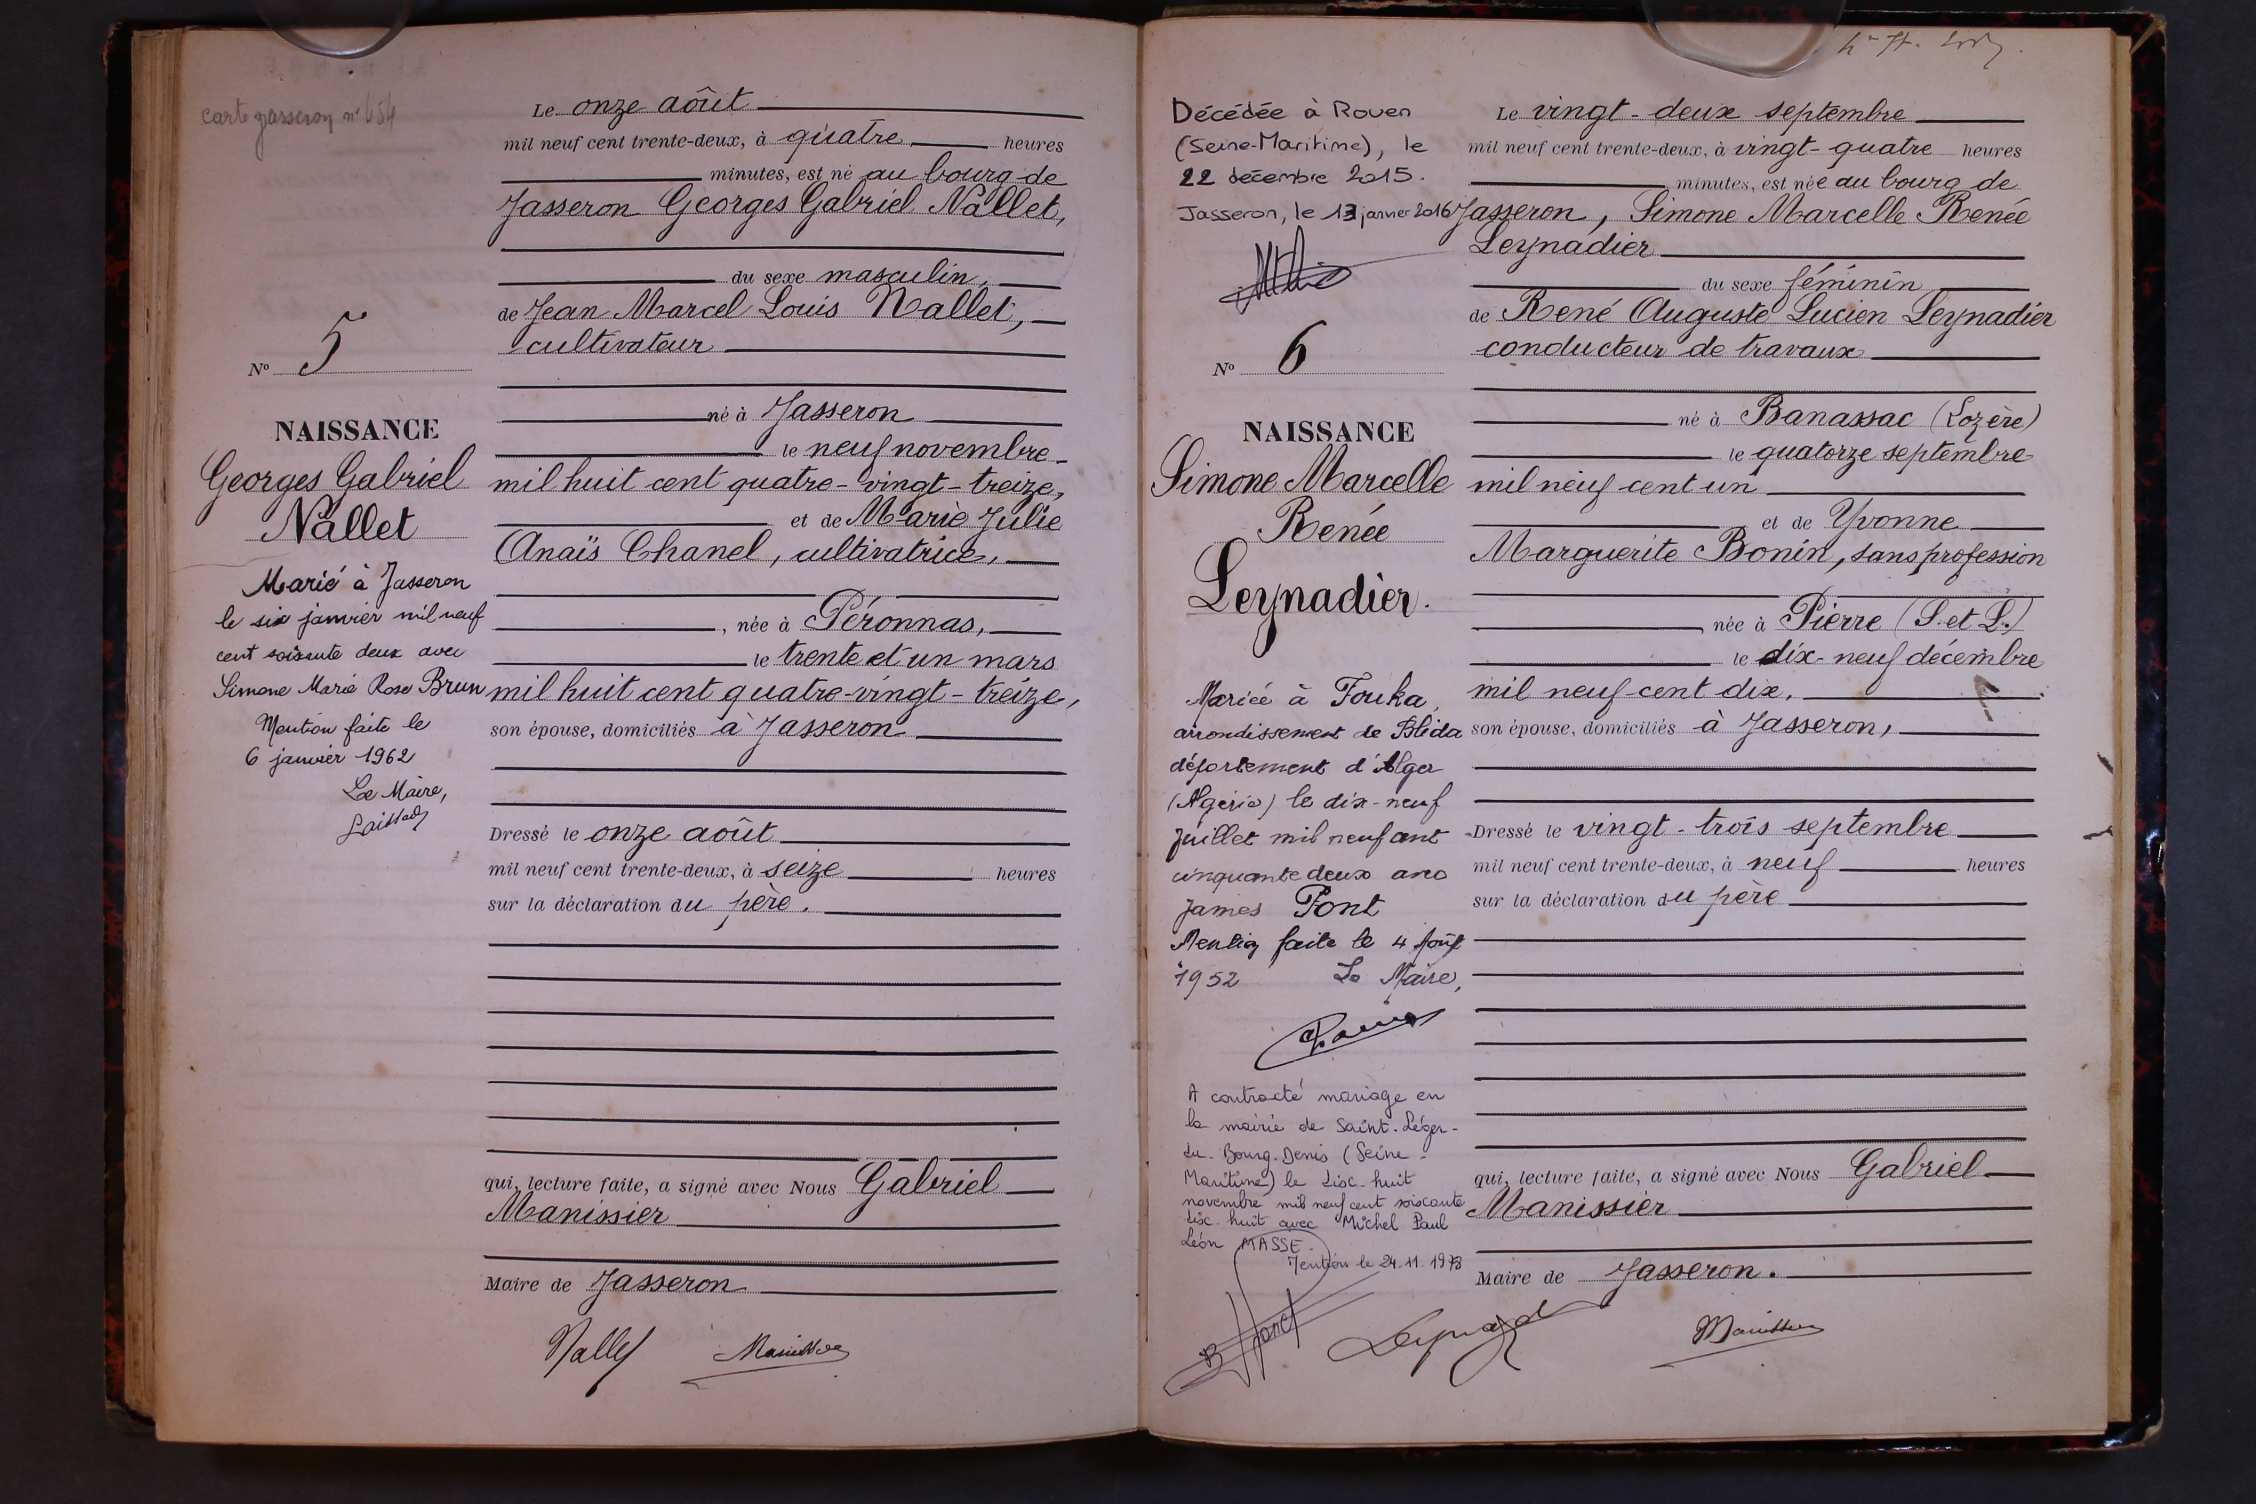 carte jasseron n° 654
N° 5
NAISSANCE
Georges Gabriel
Nallet
Marié à Jasseron
le six janvier mil neuf
cent soixante deux avec
Simone Marie Rose Brun
Mention faite le
6 janvier 1962
Le Maire,
Le onze août
mil neuf cent trente-deux, à quatre heures
minutes, est né au bourg de
Jasseron Georges Gabriel Nallet,
du sexe masculin,
de Jean Marcel Louis Nallet,
cultivateur
né à Jasseron
le neuf novembre
mil huit cent quatre-vingt-treize,
et de Marie Julie
Anaïs Chanel, cultivatrice,
, née à Péronnas,
le trente et un mars
mil huit cent quatre-vingt-treize,
son épouse, domiciliés à Jasseron
Dressé le onze août
mil neuf cent trente-deux, à seize heures
sur la déclaration du père.
qui, lecture faite, a signé avec Nous Gabriel
Manissier
Maire de Jasseron
Nallet Manissier
Décédée à Rouen
(Seine-Maritime), le
22 décembre 2015.
Jasseron, le 13 janvier 2016
N° 6
NAISSANCE
Simone Marcelle
Renée
Leynadier.
Mariée à Fouka,
arrondissement de Blida
département d'Alger
(Algérie) le dix-neuf
juillet mil neuf cent
cinquante deux avec
James Font
Mention faite le 4 Août
1952 Le Maire,
A contracté mariage en
la mairie de Saint-Léger-
du-Bourg-Denis (Seine-
Maritime) le dix-huit
novembre mil neuf cent soixante
dix-huit avec Michel Paul
Léon MASSE.
Mention le 24.11.1978
Le vingt-deux septembre
mil neuf cent trente-deux, à vingt-quatre heures
minutes, est née au bourg de
Jasseron, Simone Marcelle Renée
Leynadier
du sexe féminin
de René Auguste Lucien Leynadier
conducteur de travaux
né à Banassac (Lozère)
le quatorze septembre
mil neuf cent un
et de Yvonne
Marguerite Bonin, sans profession
née à Pierre (S. et L.)
le dix-neuf décembre
mil neuf cent dix,
son épouse, domiciliés à Jasseron,
Dressé le vingt-trois septembre
mil neuf cent trente-deux, à neuf heures
sur la déclaration du père
qui, lecture faite, a signé avec Nous Gabriel
Manissier
Maire de Jasseron.
Leynadier Manissier